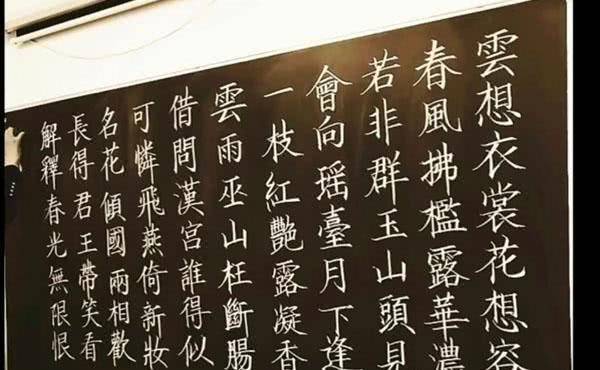 雲想衣裳花想容
春風拂檻露華濃
若非群玉山頭見
會向瑶臺月下逢
一枝紅艷露凝香
雲雨巫山枉斷腸
借問漢宮誰得似
可憐飛燕倚新妝
名花傾國兩相歡
長得君王帶笑看
解釋春光無限恨